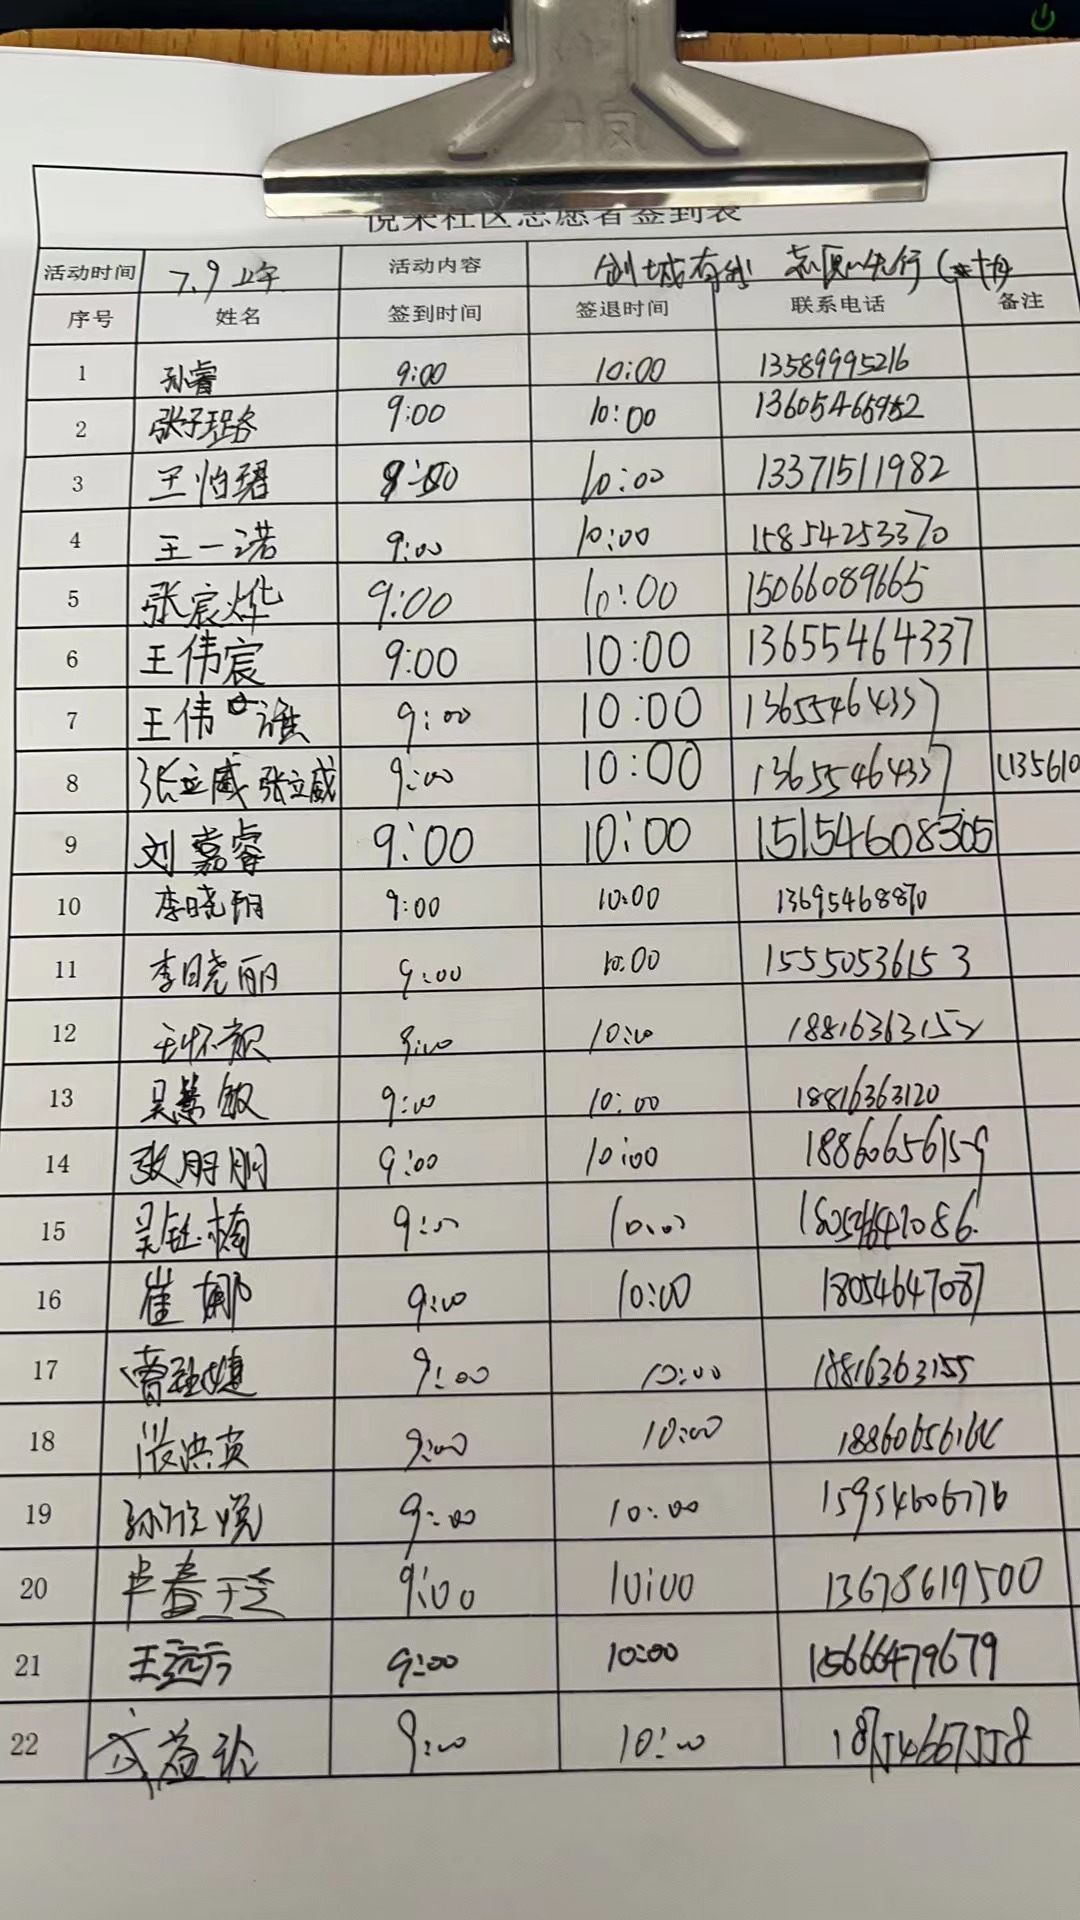 悦来社区志愿者签到表
活动时间 7.9 上午 活动内容 创城有我 志愿先行
序号 姓名 签到时间 签退时间 联系电话 备注
1 孙睿 9:00 10:00 13589995216
2 张子璐 9:00 10:00 13605465952
3 王怡珺 10:00 13371511982
4 王一诺 9:00 10:00 15854253370
5 张宸烨 9:00 10:00 15066089665
6 王伟宸 9:00 10:00 13655464337
7 王伟 9:00 10:00 13655464337
8 张立威 张立威 9:00 10:00 13655464337 (135610
9 刘嘉睿 9:00 10:00 15154608305
10 李晓玥 9:00 10:00 13695468870
11 李晓丽 9:00 10:00 15550536153
12 9:00 10:00 18816363152
13 吴慧敏 9:00 10:00 18816363120
14 张朋朋 9:00 10:00 18860656159
15 吴钰楠 9:00 10:00
16 崔娜 9:00 10:00 18054647087
17 9:00 10:00 18816363155
18 段洪英 9:00 10:00
19 孙欣悦 9:00 10:00 15954606776
20 9:00 10:00 13678619500
21 王远方 9:00 10:00 15666479679
22 9:00 10:00 18754667558